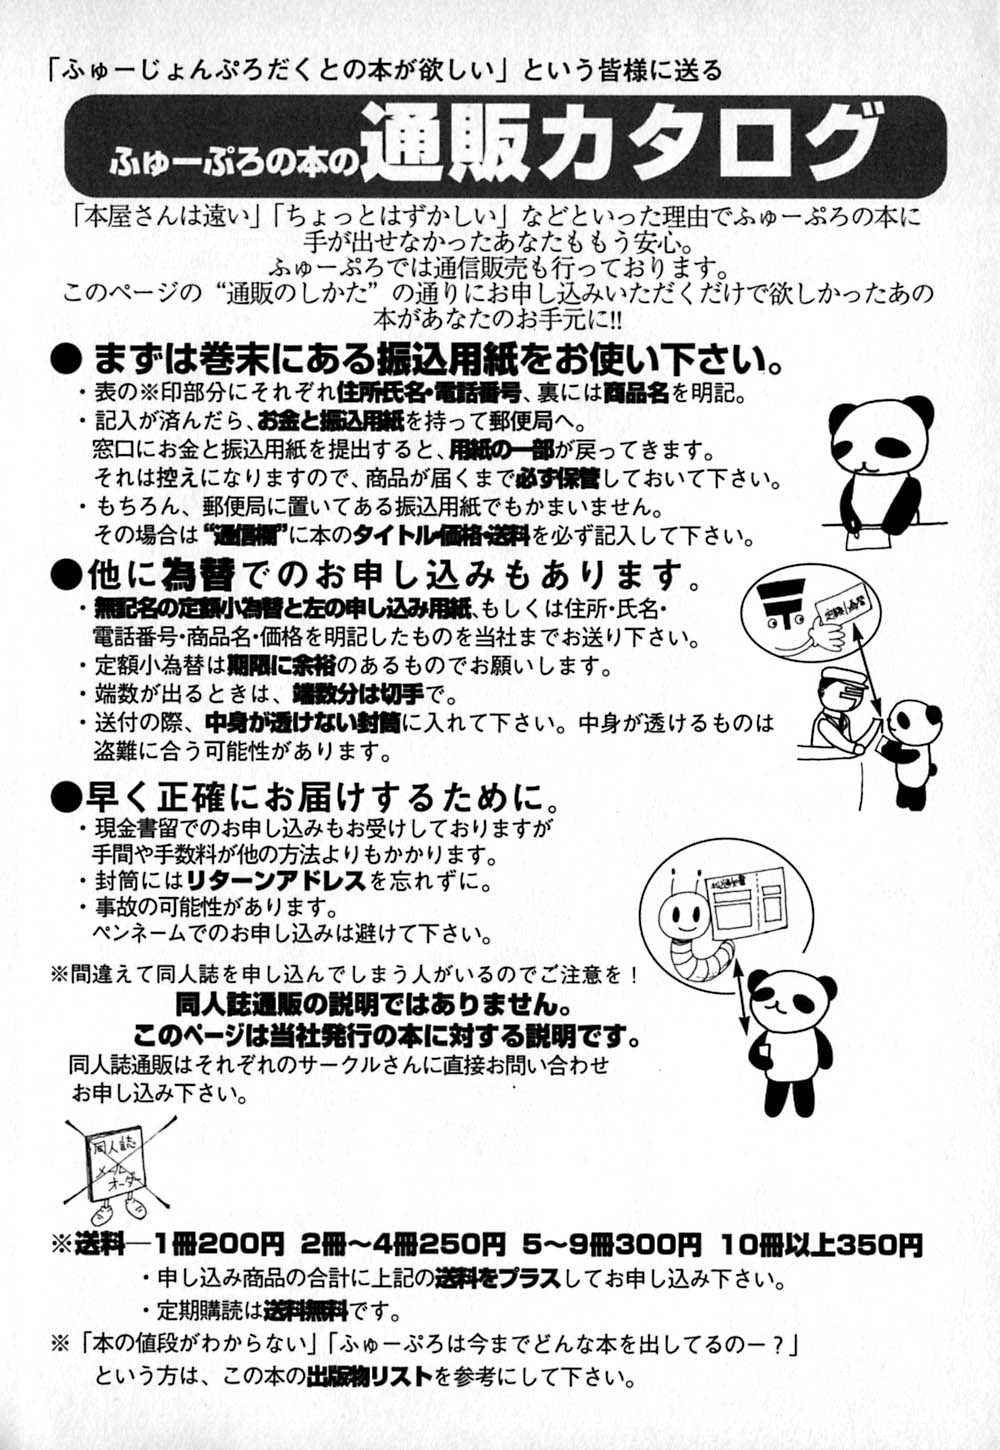 「ふゅーじょんぷろだくとの本が欲しい」という皆様に送る
ふゅーぷろの本の通販カタログ
「本屋さんは遠い」「ちょっとはずかしい」などといった理由でふゅーぷろの本に
手が出せなかったあなたももう安心。
ふゅーぷろでは通信販売も行っております。
このページの“通販のしかた”の通りにお申し込みいただくだけで欲しかったあの
本があなたのお手元に!!
●まずは巻末にある振込用紙をお使い下さい。
・表の※印部分にそれぞれ住所氏名・電話番号、裏には商品名を明記。
・記入が済んだら、お金と振込用紙を持って郵便局へ。
窓口にお金と振込用紙を提出すると、用紙の一部が戻ってきます。
それは控えになりますので、商品が届くまで必ず保管しておいて下さい。
・もちろん、郵便局に置いてある振込用紙でもかまいません。
その場合は“通信欄”に本のタイトル・価格・送料を必ず記入して下さい。
●他に為替でのお申し込みもあります。
・無記名の定額小為替と左の申し込み用紙、もしくは住所・氏名・
電話番号・商品名・価格を明記したものを当社までお送り下さい。
定額小為替
・定額小為替は期限に余裕のあるものでお願いします。
・端数が出るときは、端数分は切手で。
・送付の際、中身が透けない封筒に入れて下さい。中身が透けるものは
盗難に合う可能性があります。
●早く正確にお届けするために。
・現金書留でのお申し込みもお受けしておりますが
手間や手数料が他の方法よりもかかります。
・封筒にはリターンアドレスを忘れずに。
・事故の可能性があります。
ペンネームでのお申し込みは避けて下さい。
※間違えて同人誌を申し込んでしまう人がいるのでご注意を！
同人誌通販の説明ではありません。
このページは当社発行の本に対する説明です。
同人誌通販はそれぞれのサークルさんに直接お問い合わせ
お申し込み下さい。
同人誌
メール
オーダー
※送料―1冊200円 2冊～4冊250円 5～9冊300円 10冊以上350円
・申し込み商品の合計に上記の送料をプラスしてお申し込み下さい。
・定期購読は送料無料です。
※「本の値段がわからない」「ふゅーぷろは今までどんな本を出してるのー？」
という方は、この本の出版物リストを参考にして下さい。